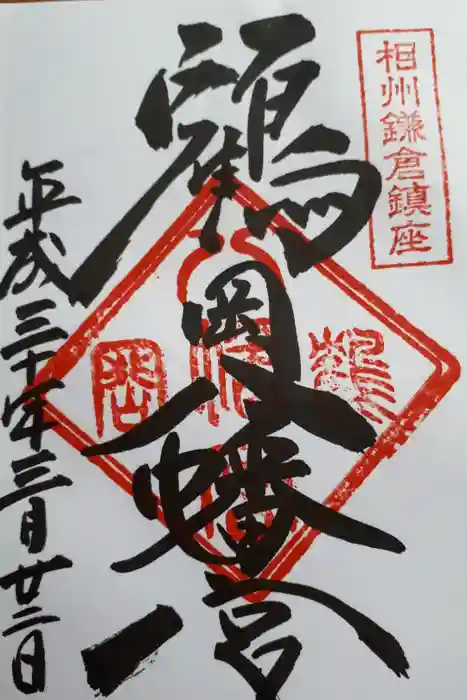 相州鎌倉鎮座
鶴岡八幡宮
平成三十年三月廿二日